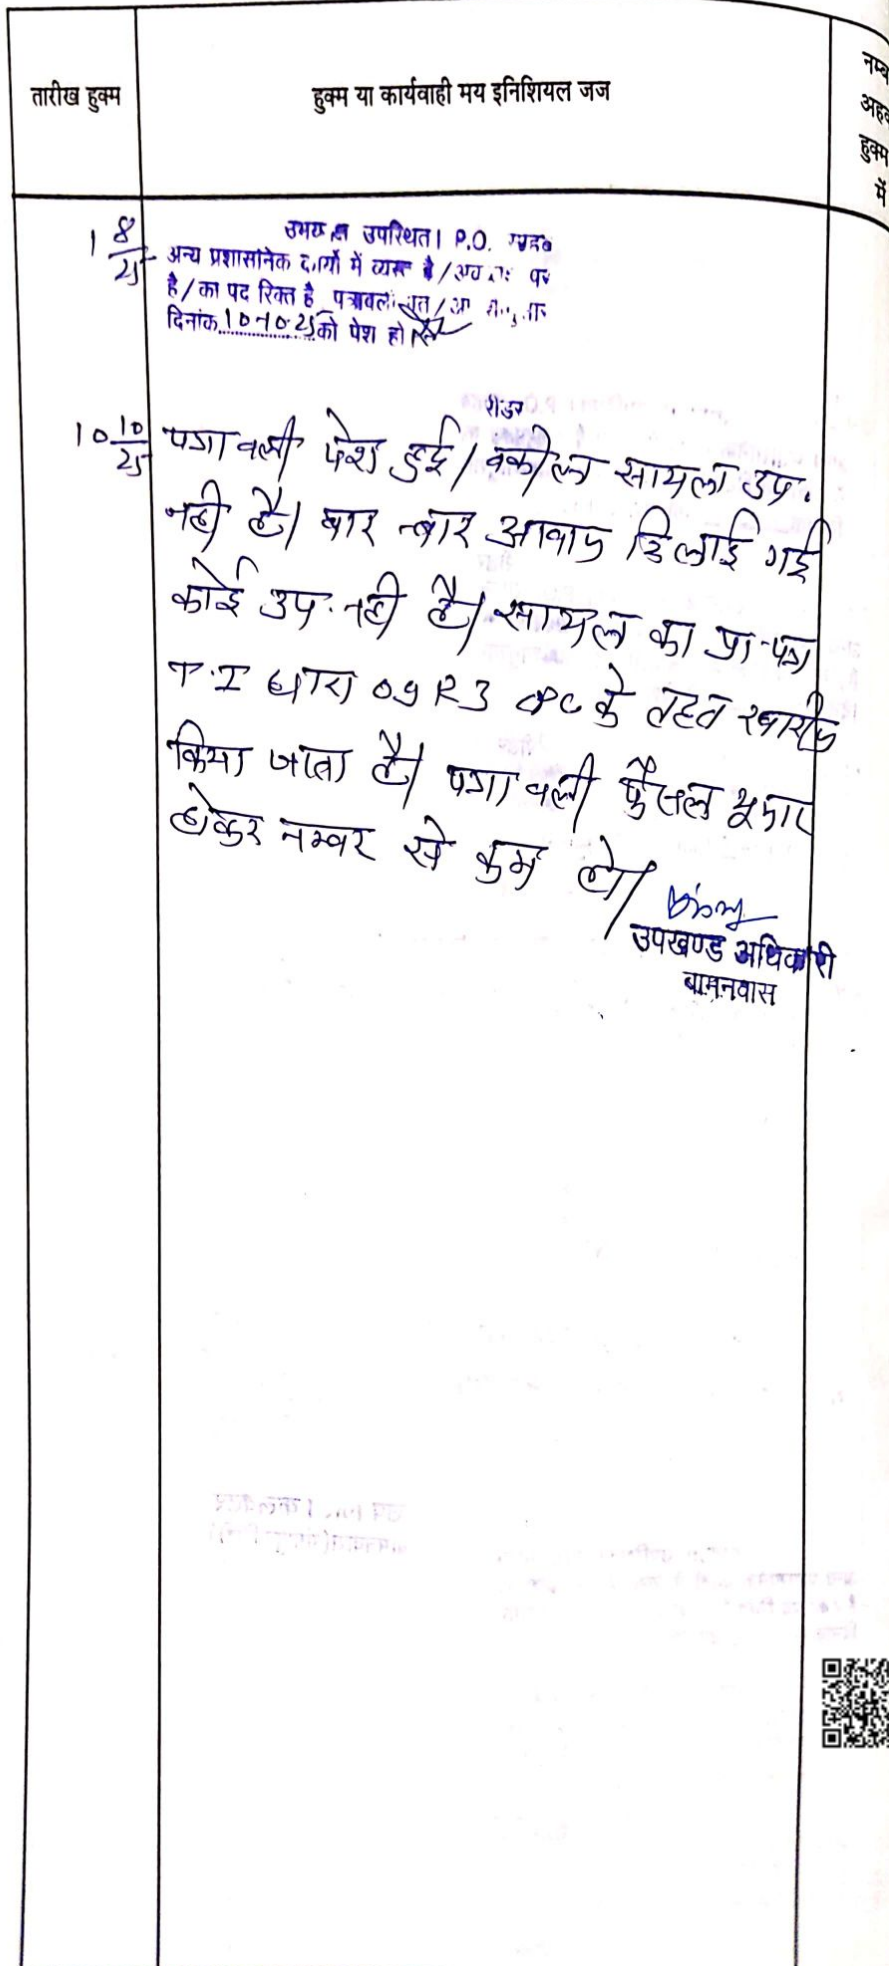 तारीख हुक्म
हुक्म या कार्यवाही मय इनिशियल जज
नम्ब
अहव
हुक्म
में
1 8/25
उभय पक्ष उपस्थित। P.O.
अन्य प्रशासनिक कार्यो में व्यस्त है/
है/का पद रिक्त है पत्रावली
दिनांक 10-10-25 को पेश हो
रीडर
10 10/25
पत्रावली पेश हुई। वकील सायल उप.
नही है। बार-बार आवाज दिलाई गई
कोई उप. नही है। सायल का प्रा-पत्र
T.I धारा 09 R3 CPC के तहत खारीज
किया जाता है। पत्रावली फैसल शुमार
होकर नम्बर से कम हो।
उपखण्ड अधिकारी
बामनवास